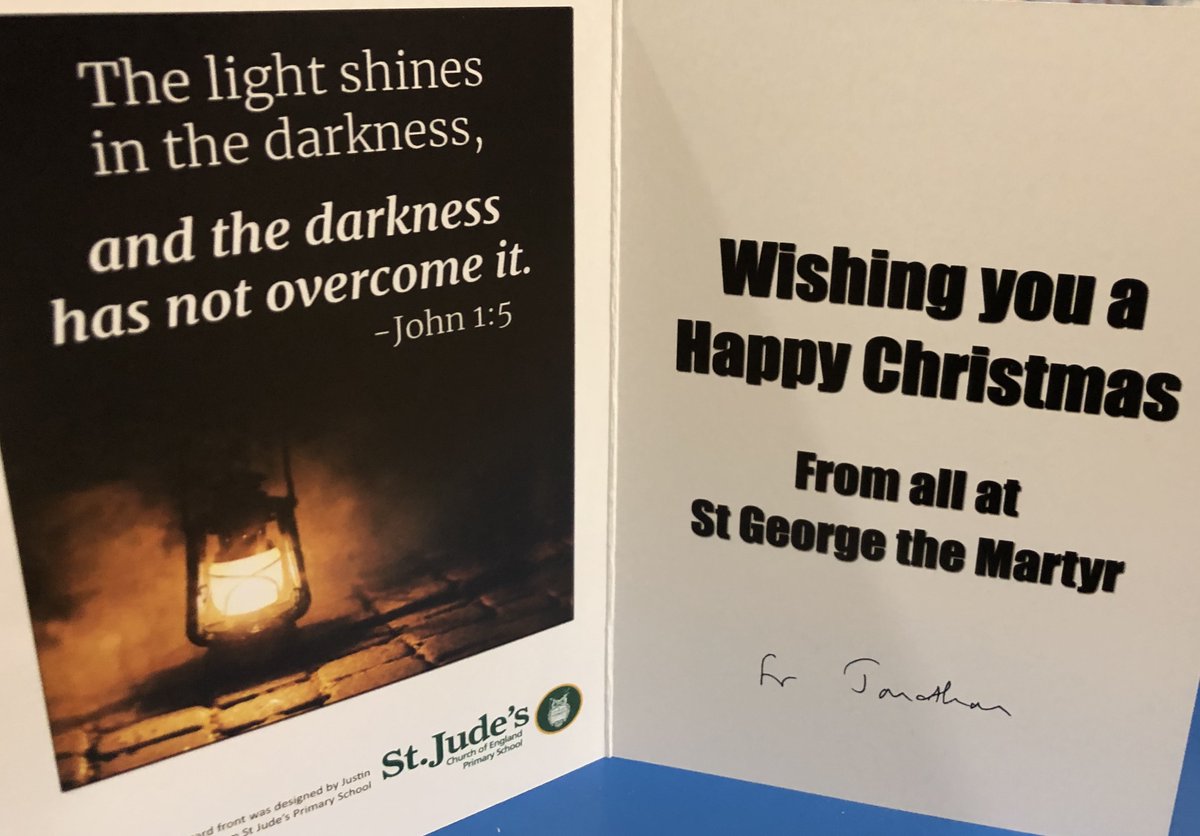 The light shines
in the darkness,
and the darkness
has not overcome it.
–John 1:5
St.Jude's
Church of England
Primary School
front was designed by Justin
St Jude's Primary School
Wishing you a
Happy Christmas
From all at
St George the Martyr
Fr Jonathan